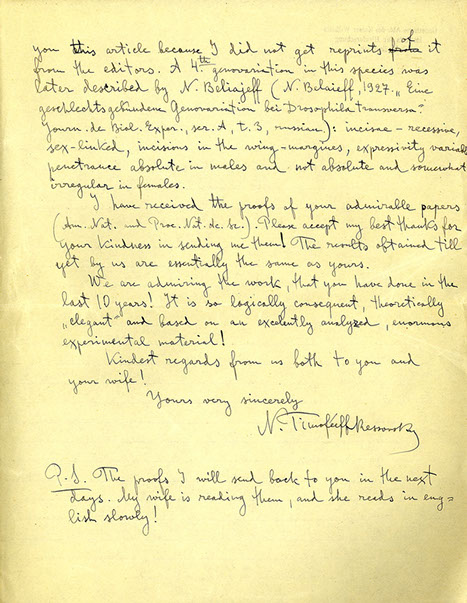 you this article because I did not get reprints of it
from the editors. A 4.th genovariation in this species was
later described by N. Beliajeff (N. Belaieff, 1927. „Eine
geschlechtsgebundene Genovariation bei Drosophila transversa"
Journ. de Biol. Exper., ser. A, t. 3, russian): incisae – recessive,
sex-linked, incisions in the wing-margines, expressivity variable
penetrance absolute in males and not absolute and somewhat
irregular in females.
I have received the proofs of your admirable papers
(Am. Nat. und Proc. Nat. Ac. Sc.). Please accept my best thanks for
your kindness in sending me them! The results obtained till
yet by us are essentially the same as yours.
We are admiring the work, that you have done in the
last 10 years! It is so logically consequent, theoretically
„elegant" and based on an excelently analyzed, enormous
experimental material!
Kindest regards from us both to you and
your wife!
Yours very sincerely
N. Timoféeff-Ressovsky
P.S. The proofs I will send back to you in the next
days. My wife is reading them, and she reads in eng=
lish slowly!